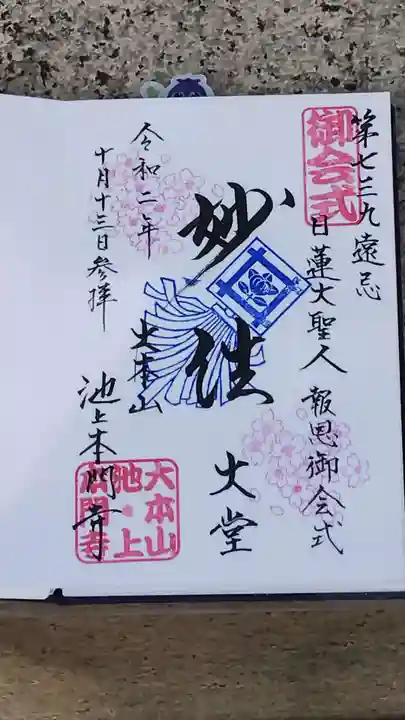 御会式
第七三九遠忌
日蓮大聖人 報恩御会式
大堂
妙法
令和二年
十月十三日参拝
大本山
池上本門寺
大本山
池上
本門寺